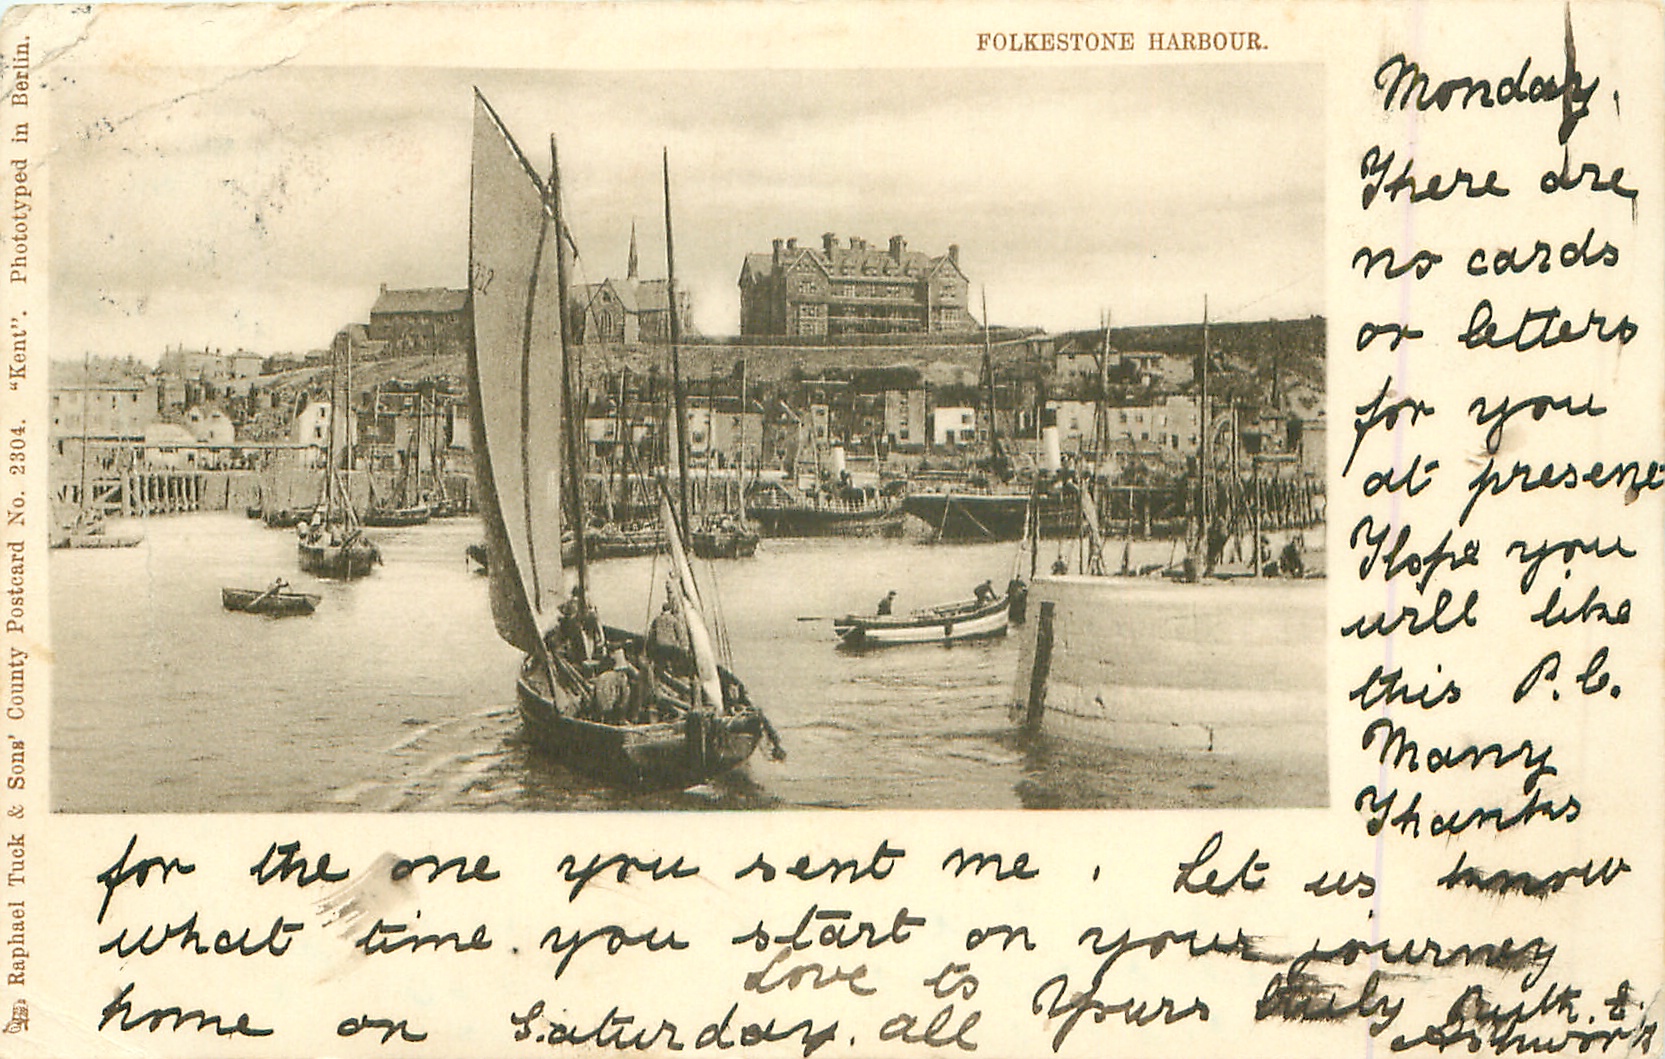 FOLKESTONE HARBOUR.
Raphael Tuck & Sons' County Postcard No. 2304. "Kent". Phototyped in Berlin.
232
Monday.
There are
no cards
or letters
for you
at present
Hope you
will like
this P.C.
Many
Thanks
for the one you sent me. Let us know
what time you start on your journey
home on Saturday.
Love to
all
Yours truly Ruth. E.
Ashworth